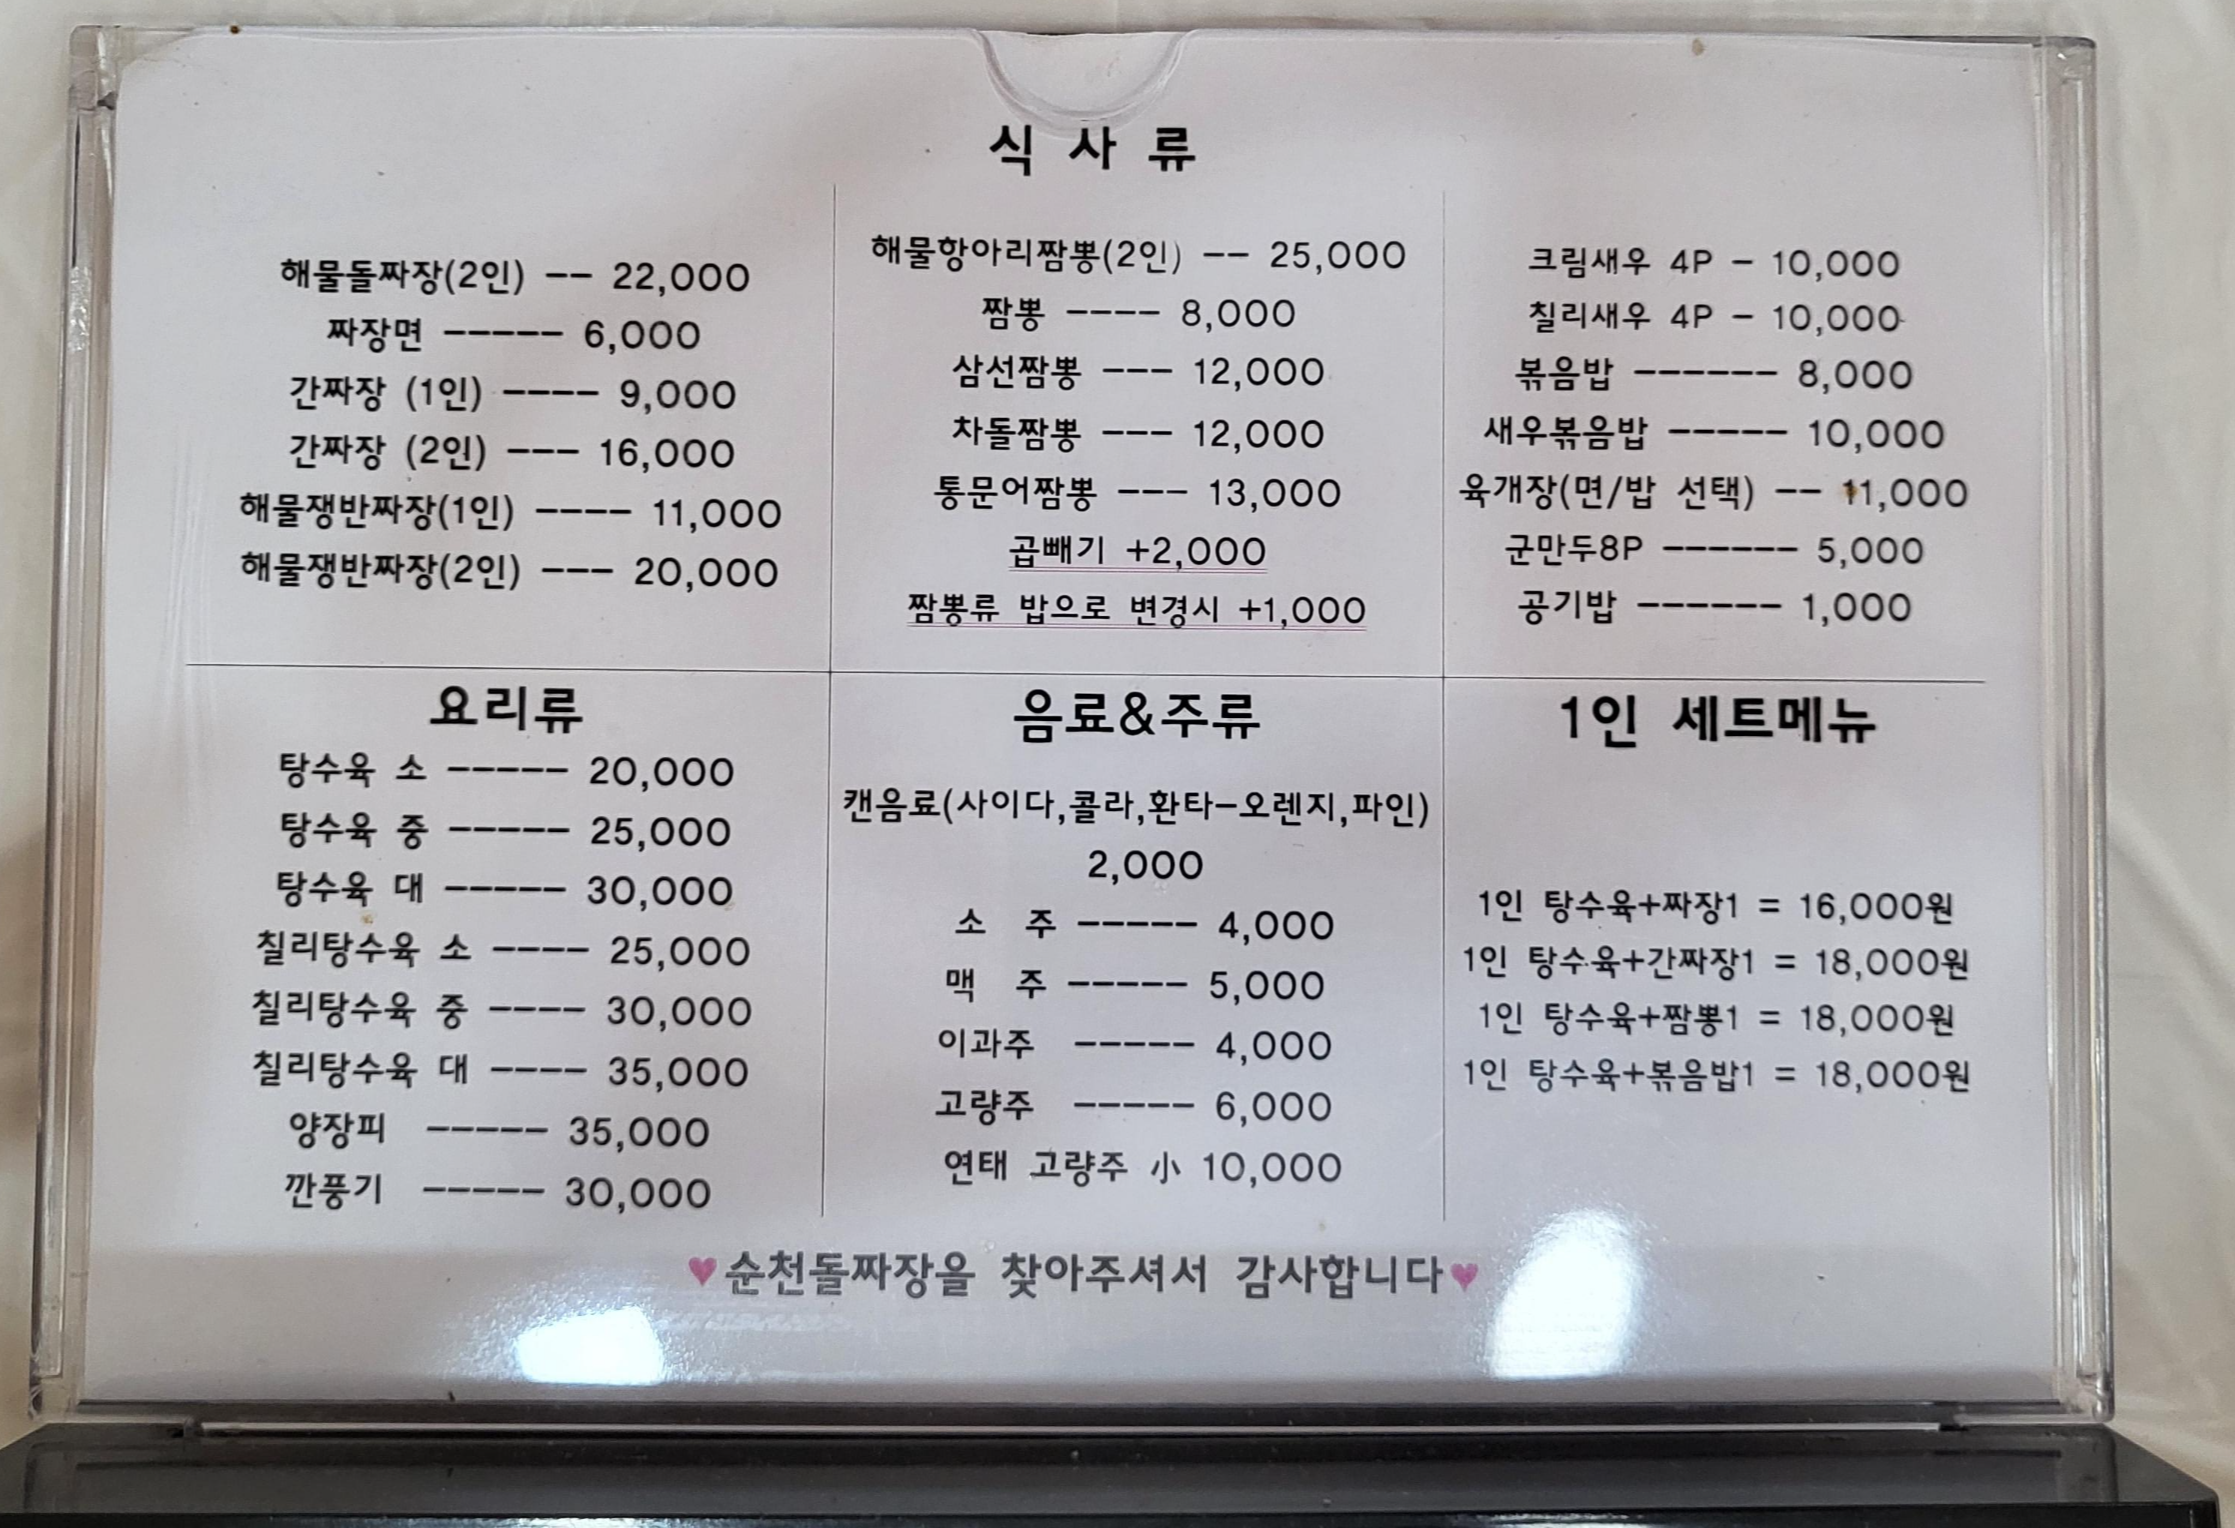 식 사 류
해물돌짜장(2인) -- 22,000
짜장면 ----- 6,000
간짜장 (1인) ---- 9,000
간짜장 (2인) --- 16,000
해물쟁반짜장(1인) ---- 11,000
해물쟁반짜장(2인) --- 20,000
해물항아리짬뽕(2인) -- 25,000
짬뽕 ---- 8,000
삼선짬뽕 --- 12,000
차돌짬뽕 --- 12,000
통문어짬뽕 --- 13,000
곱빼기 +2,000
짬뽕류 밥으로 변경시 +1,000
크림새우 4P - 10,000
칠리새우 4P - 10,000
볶음밥 ------ 8,000
새우볶음밥 ----- 10,000
육개장(면/밥 선택) -- 11,000
군만두8P ------ 5,000
공기밥 ------ 1,000
요리류
탕수육 소 ----- 20,000
탕수육 중 ----- 25,000
탕수육 대 ----- 30,000
칠리탕수육 소 ---- 25,000
칠리탕수육 중 ---- 30,000
칠리탕수육 대 ---- 35,000
양장피 ----- 35,000
깐풍기 ----- 30,000
음료&주류
캔음료(사이다,콜라,환타-오렌지,파인)
2,000
소 주 ----- 4,000
맥 주 ----- 5,000
이과주 ----- 4,000
고량주 ----- 6,000
연태 고량주 小 10,000
1인 세트메뉴
1인 탕수육+짜장1 = 16,000원
1인 탕수육+간짜장1 = 18,000원
1인 탕수육+짬뽕1 = 18,000원
1인 탕수육+볶음밥1 = 18,000원
♥순천돌짜장을 찾아주셔서 감사합니다♥